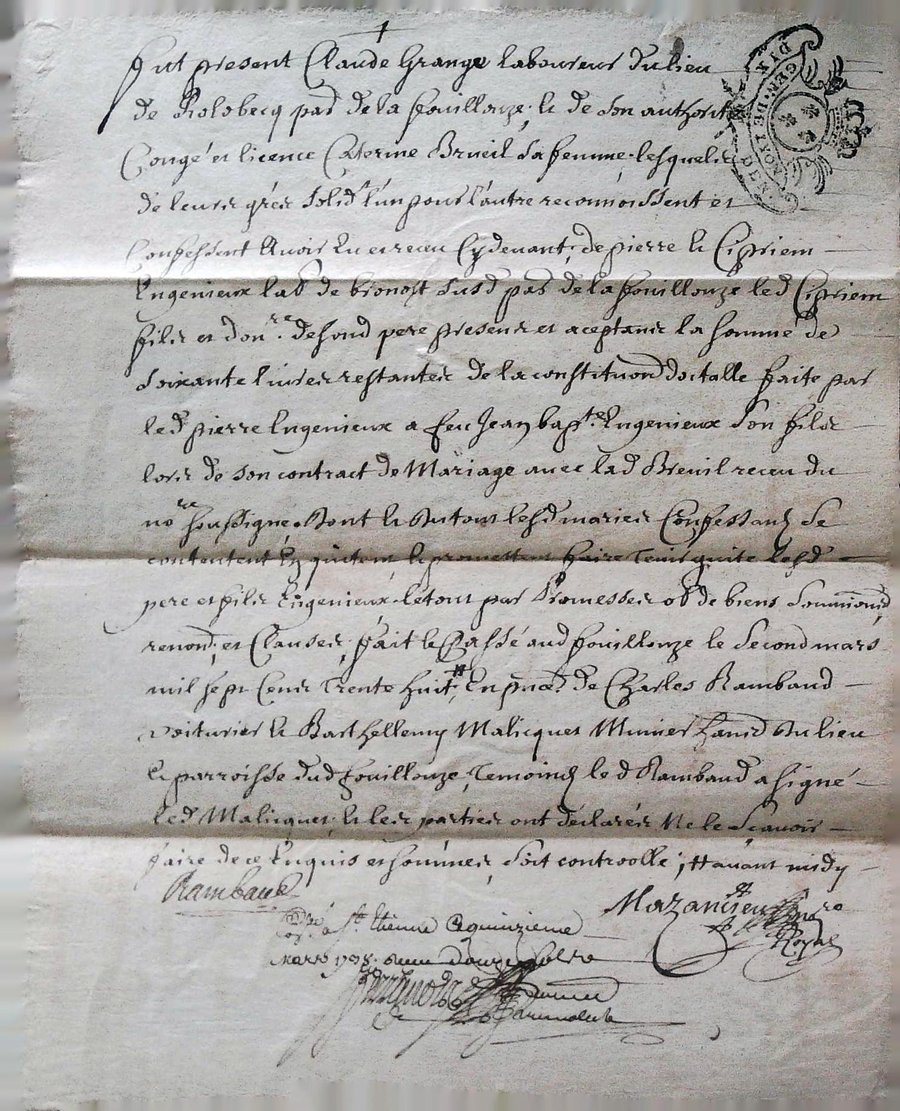 fut present Claude Grange laboureur du lieu
de Rolobecq par de la fouillouze, & de son authorité
Congé et licence Caterine Breuil sa femme lesquels
de leurs grés solid.t l'un pour l'autre reconnoissent et
Confessent Avoir Eu et receu Cydevant, de pierre & Cipriem
Engenieux lab.r de bionost susd par de la fouillouze led Cipriem
fils et don.re desond pere presens et aceptans la somme de
Soixante livres restantes de la constituond dottalle faite par
led pierre Engenieux a feu Jean bap.te Engenieux son fils
lors de son contract de Mariage avec lad Breuil receu du
no.re soussigné, dont & du tout lesd mariés Confessans se
contentent En quitent & promettent faire tenir quite lesd
pere et fils Engenieux, le tout par Promesses ob de biens soumiond
renond, et Clauses, fait & Passé aud fouillouze le second mars
mil sept Cens trente huit, En pnce de Charles Rambaud
voiturier & Barthellemy Malicques Munier du lieu
& parroisse dud fouillouze, temoins led Rambaud a signé
led Malicques, & les parties ont déclarés Ne le Scavoir
faire de ce Enquis et sommés, soit controollé, avant midy
Rambaud
Mazancieu no.re Royal
a St. Etienne le quinzieme
Mars 1738. douze sols
GEN. DE LION